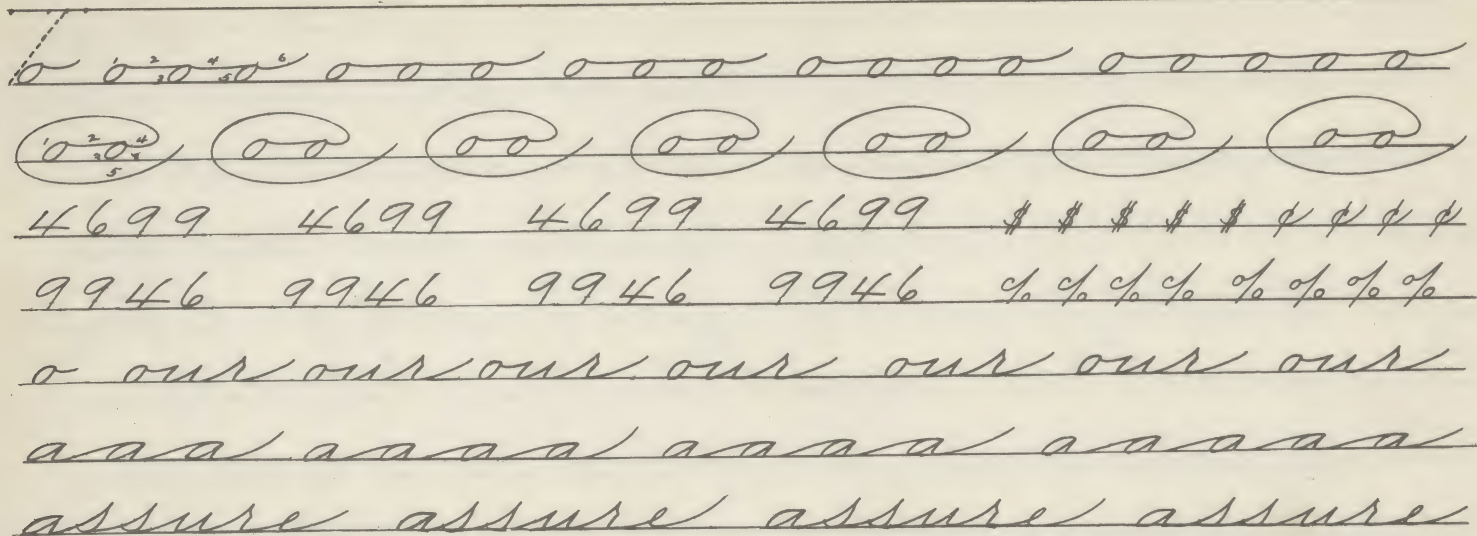 1 2 3 4 5 6
o ooo ooo ooo oooo ooooo
1 2 3 4 5
oo oo oo oo oo oo oo
4699 4699 4699 4699 $ $ $ $ $ ¢ ¢ ¢ ¢
9946 9946 9946 9946 % % % % % % % %
o our our our our our our our
aaa aaaa aaaa aaaaa
assure assure assure assure